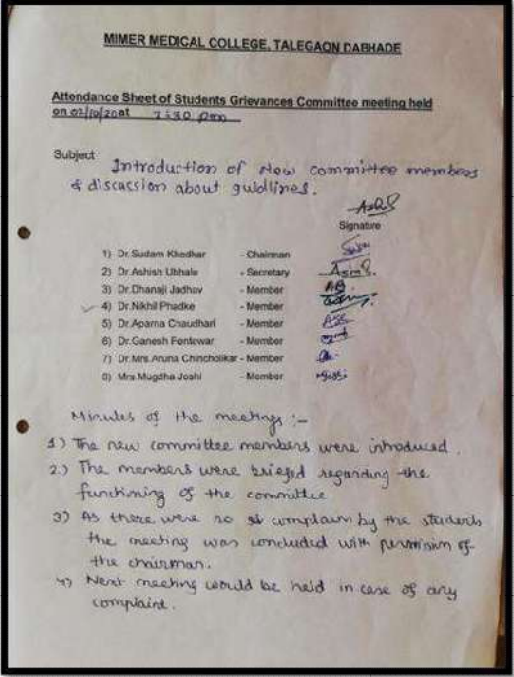 MIMER MEDICAL COLLEGE, TALEGAON DABHADE
Attendance Sheet of Students Grievances Committee meeting held
on 02/10/20 at 2:30 pm
Subject Introduction of New committee members
& discussion about guidlines.
Signature
1) Dr. Sudam Khedkar - Chairman
2) Dr. Ashish Ubhale - Secretary
3) Dr. Dhanaji Jadhav - Member
4) Dr. Nikhil Phadke - Member
5) Dr. Aparna Chaudhari - Member
6) Dr. Ganesh - Member
7) Dr. Mrs. Aruna Chincholikar - Member
8) Mrs. Mugdha Joshi - Member
Minutes of the meetings :-
1) The new committee members were introduced.
2.) The members were briefed regarding the
functioning of the committee
3) As there were no complain by the students
the meeting was concluded with permision of
the chairman.
4) Next meeting would be held in case of any
complaint.